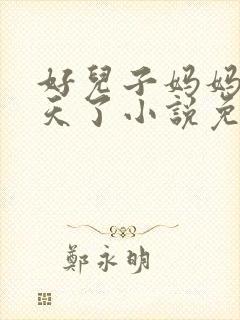 好兒子妈妈
天了小說免
鄭永明